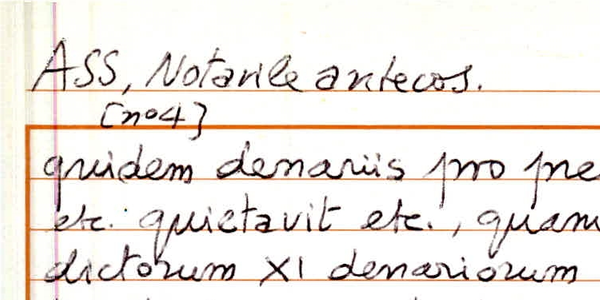 ASS, Notarile antecos.
[no4]
quidem denariis pro pre
etc. quietavit etc., quam
dictorum XI denariorum